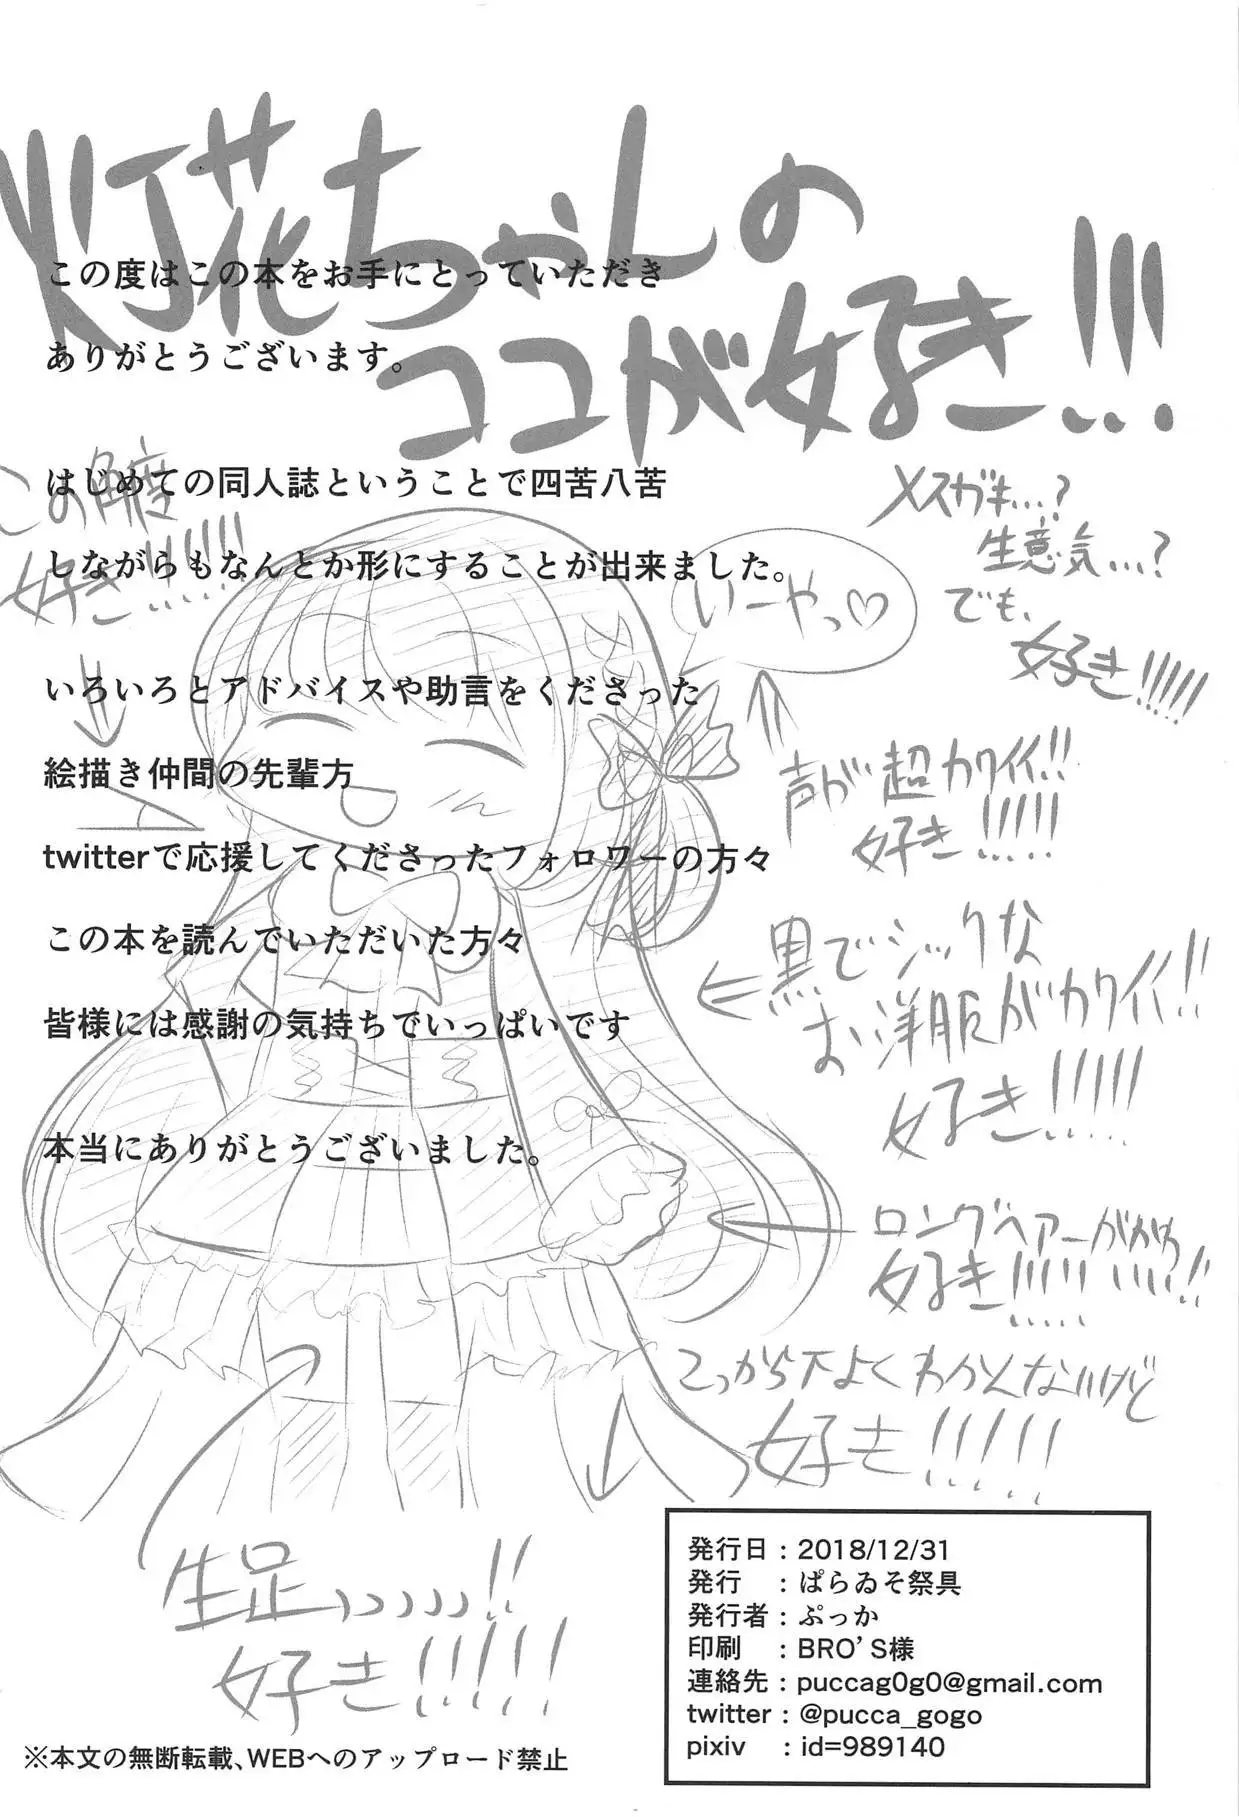 灯花ちゃんの
ココが好き!!!
この度はこの本をお手にとっていただき
ありがとうございます。
はじめての同人誌ということで四苦八苦
しながらもなんとか形にすることが出来ました。
いろいろとアドバイスや助言をくださった
絵描き仲間の先輩方
twitterで応援してくださったフォロワーの方々
この本を読んでいただいた方々
皆様には感謝の気持ちでいっぱいです
本当にありがとうございました。
この角度
好き!!!!!!
いーやっ♡
メスガキ...?
生意気...?
でも、
好き!!!!!
声が超カワイイ!!
好き!!!!!
黒でシックな
お洋服がカワイイ!!
好き!!!!!
ロングヘアーが
好き!!!!!
こっから下よくわかんないけど
好き!!!!!
生足ッッッッッ!!
好き!!!!!
発行日：2018/12/31
発行　：ぱらゐそ祭具
発行者：ぷっか
印刷　：BRO'S様
連絡先：puccag0g0@gmail.com
twitter：@pucca_gogo
pixiv　：id=989140
※本文の無断転載、WEBへのアップロード禁止